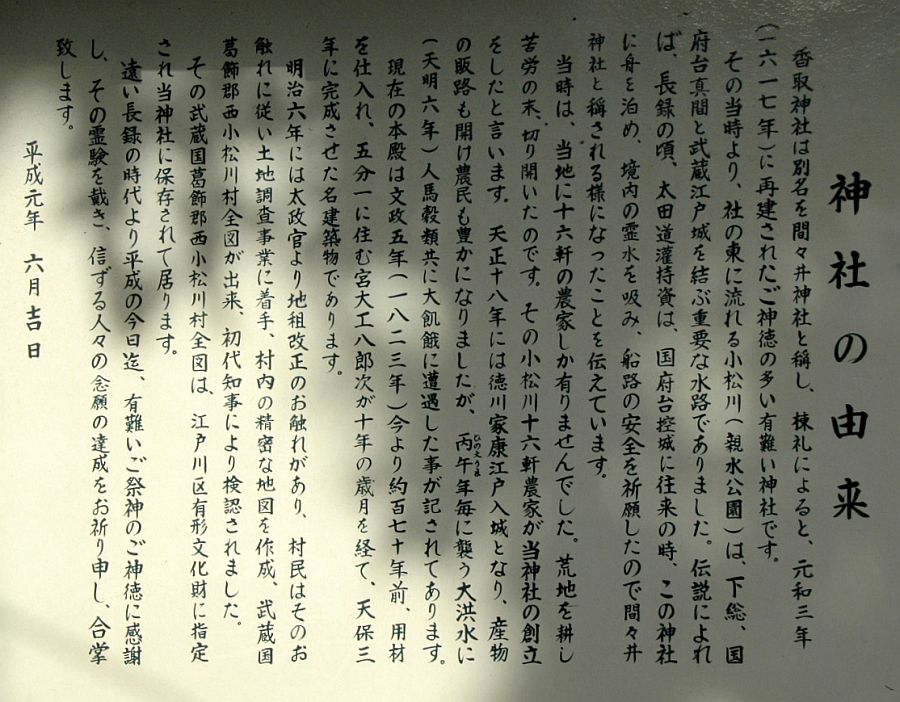 神社の由来
香取神社は別名を間々井神社と稱し、棟礼によると、元和三年
(一六一七年)に再建されたご神徳の多い有難い神社です。
その当時より、社の東に流れる小松川(親水公園)は、下総、国
府台真間と武蔵江戸城を結ぶ重要な水路でありました。伝説によれ
ば、長録の頃、太田道灌持資は、国府台控城に往来の時、この神社
に舟を泊め、境内の霊水を吸み、船路の安全を祈願したので間々井
神社と稱される様になったことを伝えています。
当時は、当地に十六軒の農家しか有りませんでした。荒地を耕し
苦労の末、切り開いたのです。その小松川十六軒農家が当神社の創立
をしたと言います。天正十八年には徳川家康江戸入城となり、産物
の販路も開け農民も豊かになりましたが、丙午年毎に襲う大洪水に
ひのえうま
(天明六年)人馬穀類共に大飢餓に遭遇した事が記されてあります。
現在の本殿は文政五年(一八二三年)今より約百七十年前、用材
を仕入れ、五分一に住む宮大工八郎次が十年の歳月を経て、天保三
年に完成させた名建築物であります。
明治六年には太政官より地租改正のお触れがあり、村民はそのお
触れに従い土地調査事業に着手、村内の精密な地図を作成、武蔵国
葛飾郡西小松川村全図が出来、初代知事により検認されました。
その武蔵国葛飾郡西小松川村全図は、江戸川区有形文化財に指定
され当神社に保存されて居ります。
遠い長録の時代より平成の今日迄、有難いご祭神のご神徳に感謝
し、その霊験を戴き、信ずる人々の念願の達成をお祈り申し、合掌
致します。
平成元年 六月吉日